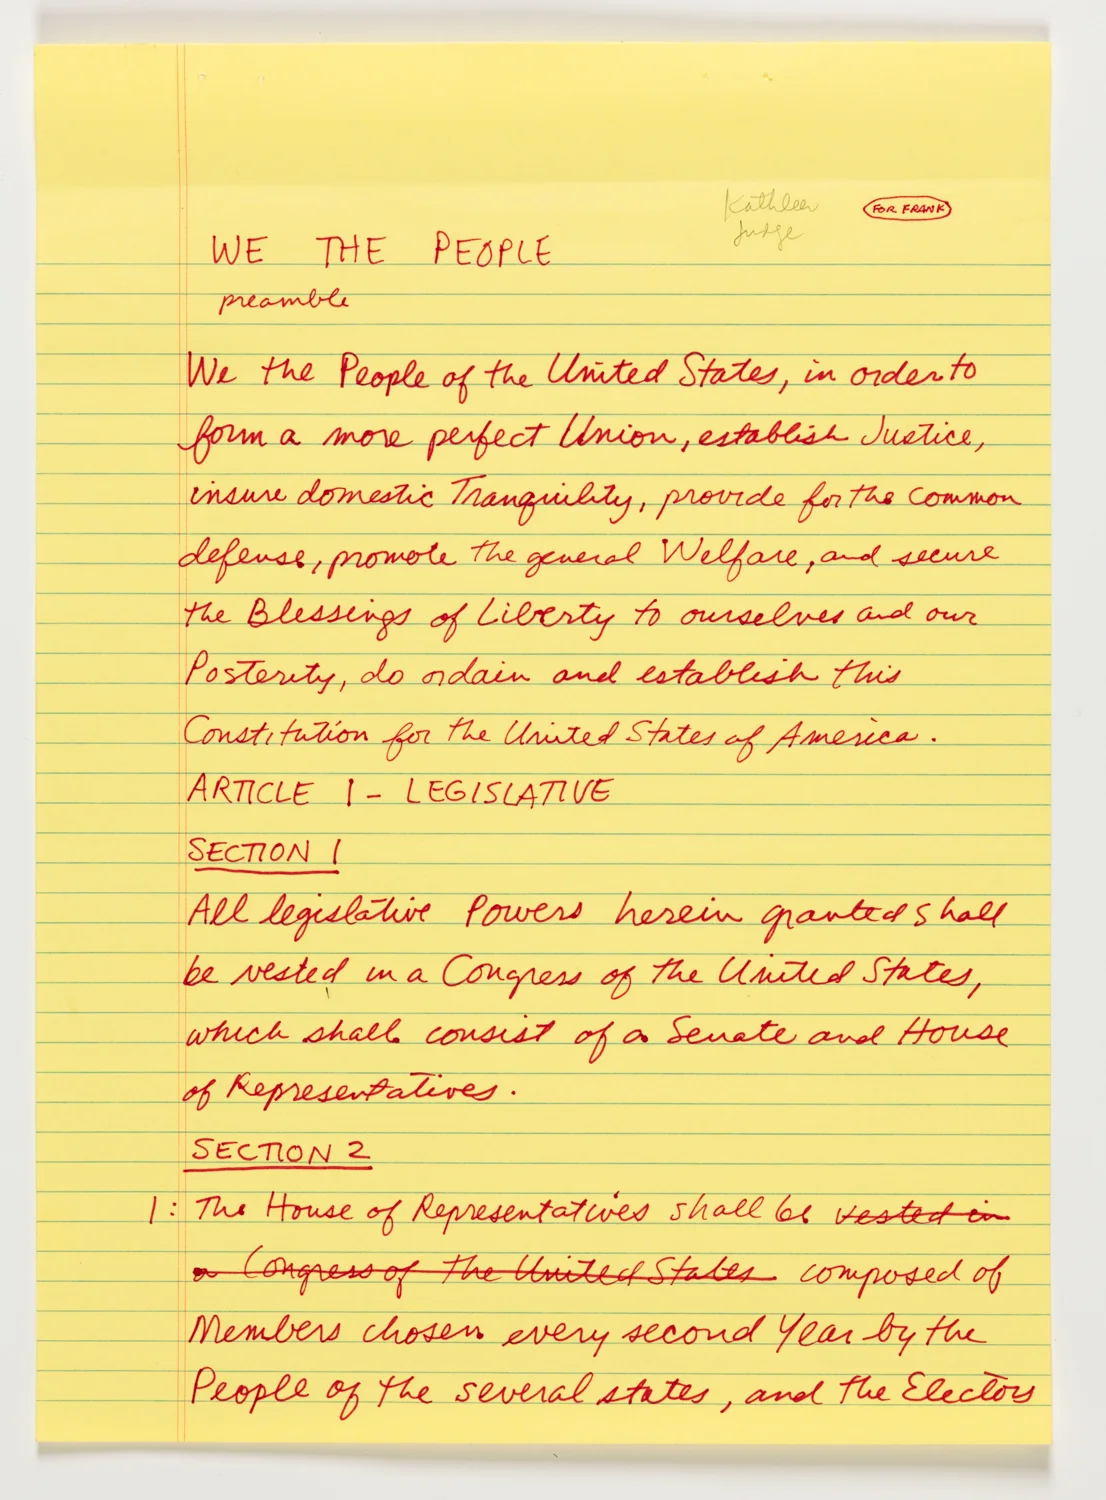 Kathleen
Judge
FOR FRANK
WE THE PEOPLE
preamble
We the People of the United States, in order to
form a more perfect Union, establish Justice,
insure domestic Tranquility, provide for the common
defense, promote the general Welfare, and secure
the Blessings of Liberty to ourselves and our
Posterity, do ordain and establish this
Constitution for the United States of America.
ARTICLE 1 - LEGISLATIVE
SECTION 1
All legislative Powers herein granted shall
be vested in a Congress of the United States,
which shall consist of a Senate and House
of Representatives.
SECTION 2
1: The House of Representatives shall be vested in
a Congress of the United States composed of
Members chosen every second Year by the
People of the several states, and the Electors